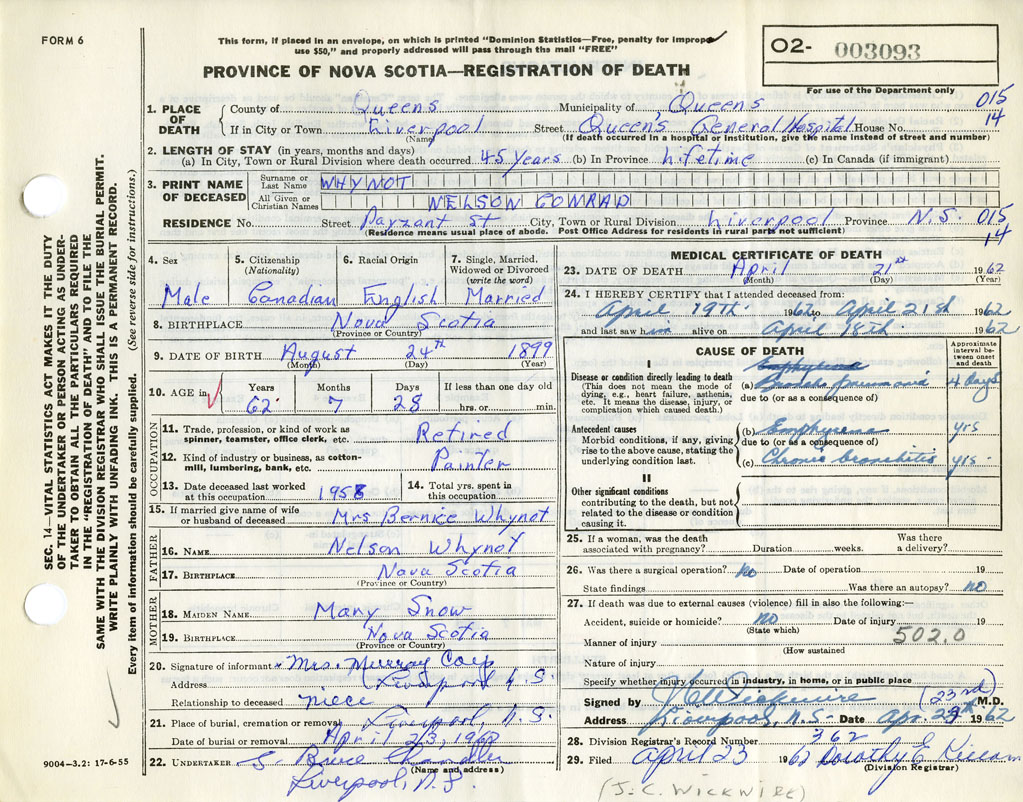 FORM 6
This form, if placed in an envelope, on which is printed "Dominion Statistics—Free, penalty for improper
use $50," and properly addressed will pass through the mail "FREE"
PROVINCE OF NOVA SCOTIA—REGISTRATION OF DEATH
O2- 003093
For use of the Department only
015
14
1. PLACE OF DEATH
County of Queens Municipality of Queens
If in City or Town Liverpool Street Queen's General Hospital House No.
(Name) (If death occurred in a hospital or institution, give the name instead of street and number)
2. LENGTH OF STAY (in years, months and days)
(a) In City, Town or Rural Division where death occurred 45 years (b) In Province Lifetime (c) In Canada (if immigrant)
3. PRINT NAME OF DECEASED
Surname or Last Name WHYNOT
All Given or Christian Names NELSON CONRAD
RESIDENCE No. Street Payzant St City, Town or Rural Division Liverpool Province N.S. 015
14
(Residence means usual place of abode. Post Office Address for residents in rural parts not sufficient)
4. Sex
Male
5. Citizenship
(Nationality)
Canadian
6. Racial Origin
English
7. Single, Married, Widowed or Divorced
(write the word)
Married
8. BIRTHPLACE Nova Scotia
(Province or Country)
9. DATE OF BIRTH August 24th 1899
(Month) (Day) (Year)
10. AGE in Years Months Days If less than one day old
62 7 28 hrs. or min.
OCCUPATION
11. Trade, profession, or kind of work as
spinner, teamster, office clerk, etc. Retired
12. Kind of industry or business, as cotton-
mill, lumbering, bank, etc. Painter
13. Date deceased last worked
at this occupation 1958
14. Total yrs. spent in
this occupation
15. If married give name of wife
or husband of deceased Mrs Bernice Whynot
FATHER
16. NAME Nelson Whynot
17. BIRTHPLACE Nova Scotia
(Province or Country)
MOTHER
18. MAIDEN NAME Mary Snow
19. BIRTHPLACE Nova Scotia
(Province or Country)
20. Signature of informant Mrs. Murray
Address Liverpool N.S
Relationship to deceased niece
21. Place of burial, cremation or removal Liverpool, N.S.
Date of burial or removal April 23, 1962
22. UNDERTAKER S. Bruce Chandler
(Name and address)
Liverpool, N.S.
9004-3.2: 17-6-55
MEDICAL CERTIFICATE OF DEATH
23. DATE OF DEATH April 21st 1962
(Month) (Day) (Year)
24. I HEREBY CERTIFY that I attended deceased from:
April 19th 1962 to April 21st 1962
and last saw him alive on April 18th 1962
CAUSE OF DEATH
Approximate interval between onset and death
I
Disease or condition directly leading to death
(This does not mean the mode of
dying, e.g., heart failure, asthenia,
etc. It means the disease, injury, or
complication which caused death.)
Emphysema
(a) pneumonia 4 days
due to (or as a consequence of)
Antecedent causes
Morbid conditions, if any, giving
rise to the above cause, stating the
underlying condition last.
(b) Emphysema yrs
due to (or as a consequence of)
(c) Chronic bronchitis yrs.
II
Other significant conditions
contributing to the death, but not
related to the disease or condition
causing it.
25. If a woman, was the death
associated with pregnancy? Duration weeks. Was there
a delivery?
26. Was there a surgical operation? No Date of operation 19
State findings Was there an autopsy? NO
27. If death was due to external causes (violence) fill in also the following:—
Accident, suicide or homicide? NO Date of injury 19
(State which)
502.0
Manner of injury
(How sustained
Nature of injury
Specify whether injury occurred in industry, in home, or in public place
Signed by J C Wickwire M.D.
(23rd)
Address Liverpool, N.S. Date Apr. 1962
28. Division Registrar's Record Number 362
29. Filed April 23 1962 Dorothy E
(Division Registrar)
(J.C. WICKWIRE)
SEC. 14—VITAL STATISTICS ACT MAKES IT THE DUTY
OF THE UNDERTAKER OR PERSON ACTING AS UNDER-
TAKER TO OBTAIN ALL THE PARTICULARS REQUIRED
IN THE "REGISTRATION OF DEATH" AND TO FILE THE
SAME WITH THE DIVISION REGISTRAR WHO SHALL ISSUE THE BURIAL PERMIT.
WRITE PLAINLY WITH UNFADING INK. THIS IS A PERMANENT RECORD.
Every item of information should be carefully supplied. (See reverse side for instructions.)